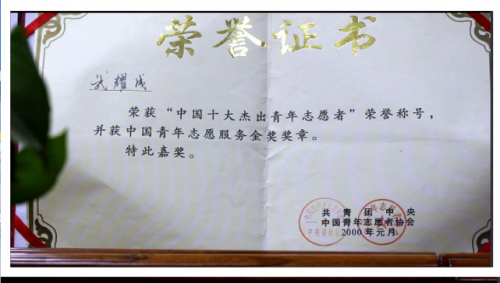 荣誉证书
武耀成
荣获“中国十大杰出青年志愿者”荣誉称号，
并获中国青年志愿服务金奖奖章。
特此嘉奖。
共青团中央
中国青年志愿者协会
2000年元月